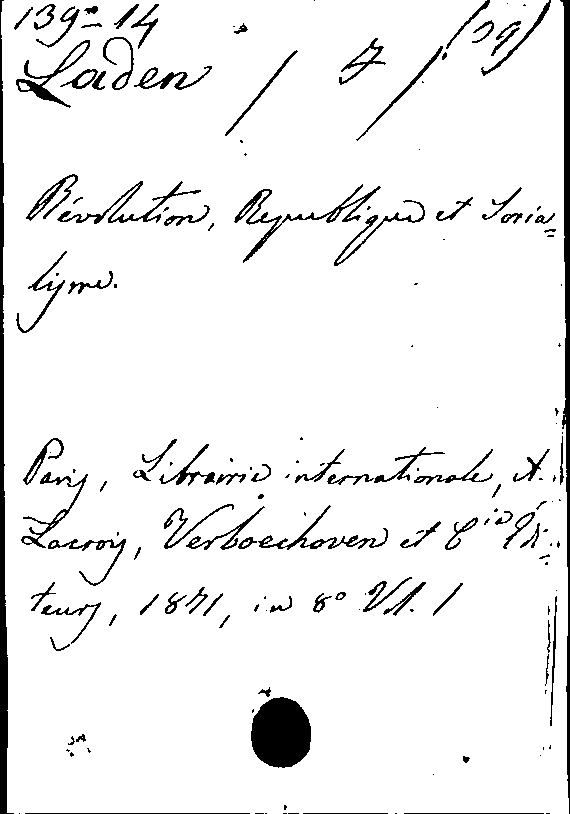 139= 14
Laden / 7 / (29)
Révolution, Republique et Socia=
lisme.
Paris, Librairie internationale, A.
Lacroix, Verboeckhoven et Cie Édi=
teurs, 1871, in 8° Vol. 1